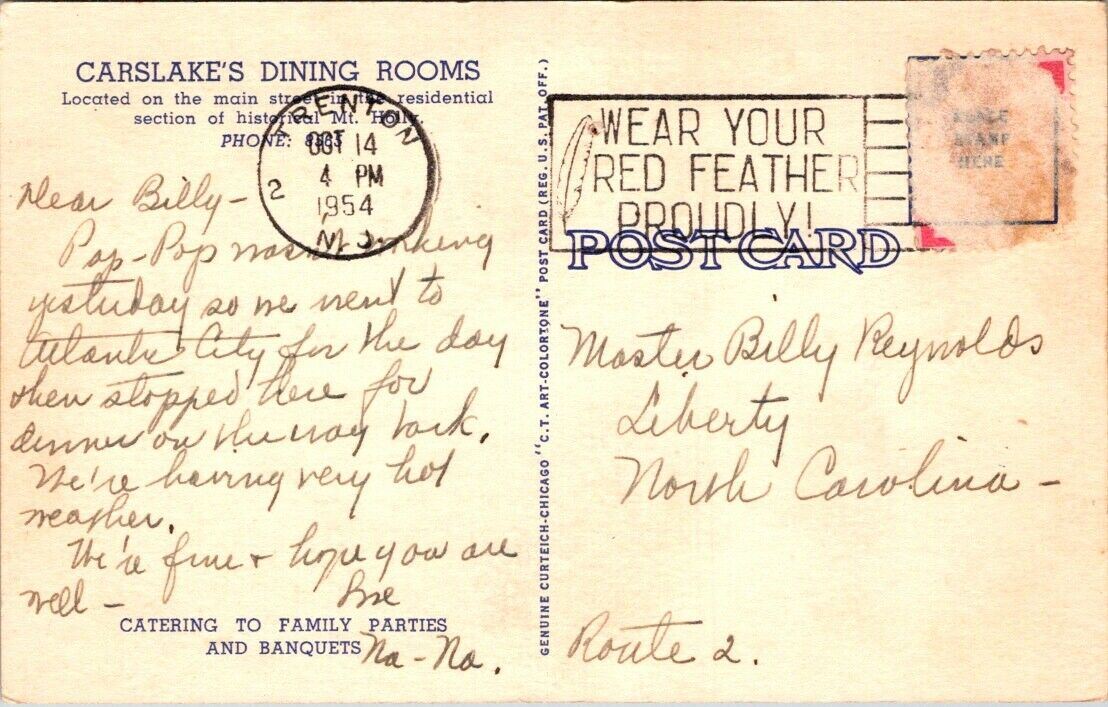 CARSLAKE'S DINING ROOMS
Located on the main street in the residential
section of historical Mt. Holly.
PHONE: 8363
TRENTON
2
OCT 14
4 PM
1954
N.J.
WEAR YOUR
RED FEATHER
PROUDLY!
PLACE
STAMP
HERE
POST CARD
Dear Billy-
Pop-Pop wasn't working
yesterday so we went to
Atlantic City for the day
then stopped here for
dinner on the way back.
We're having very hot
weather.
We're fine + hope you are
well -
Na-Na.
CATERING TO FAMILY PARTIES
AND BANQUETS
GENUINE CURTEICH-CHICAGO "C.T. ART-COLORTONE" POST CARD (REG. U.S. PAT. OFF.)
Master Billy Reynolds
Liberty
North Carolina -
Route 2.